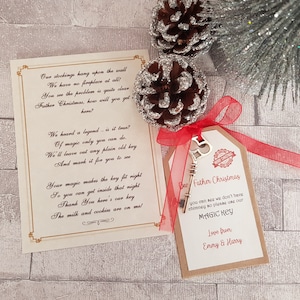 Our stockings hang upon the wall
We have no fireplace at all!
You see the problem is quite clear
Father Christmas, how will you get
here?
We heard a legend - is it true?
Of magic only you can do.
We'll leave out any plain old key
And mark it for you to see
Your magic makes the key fit right
So you can get inside that night
Thank You have a care
The milk and cookies are on me!
Father Christmas
you can see we don't have
chimney so please use our
MAGIC KEY
Love from
Emily & Harry